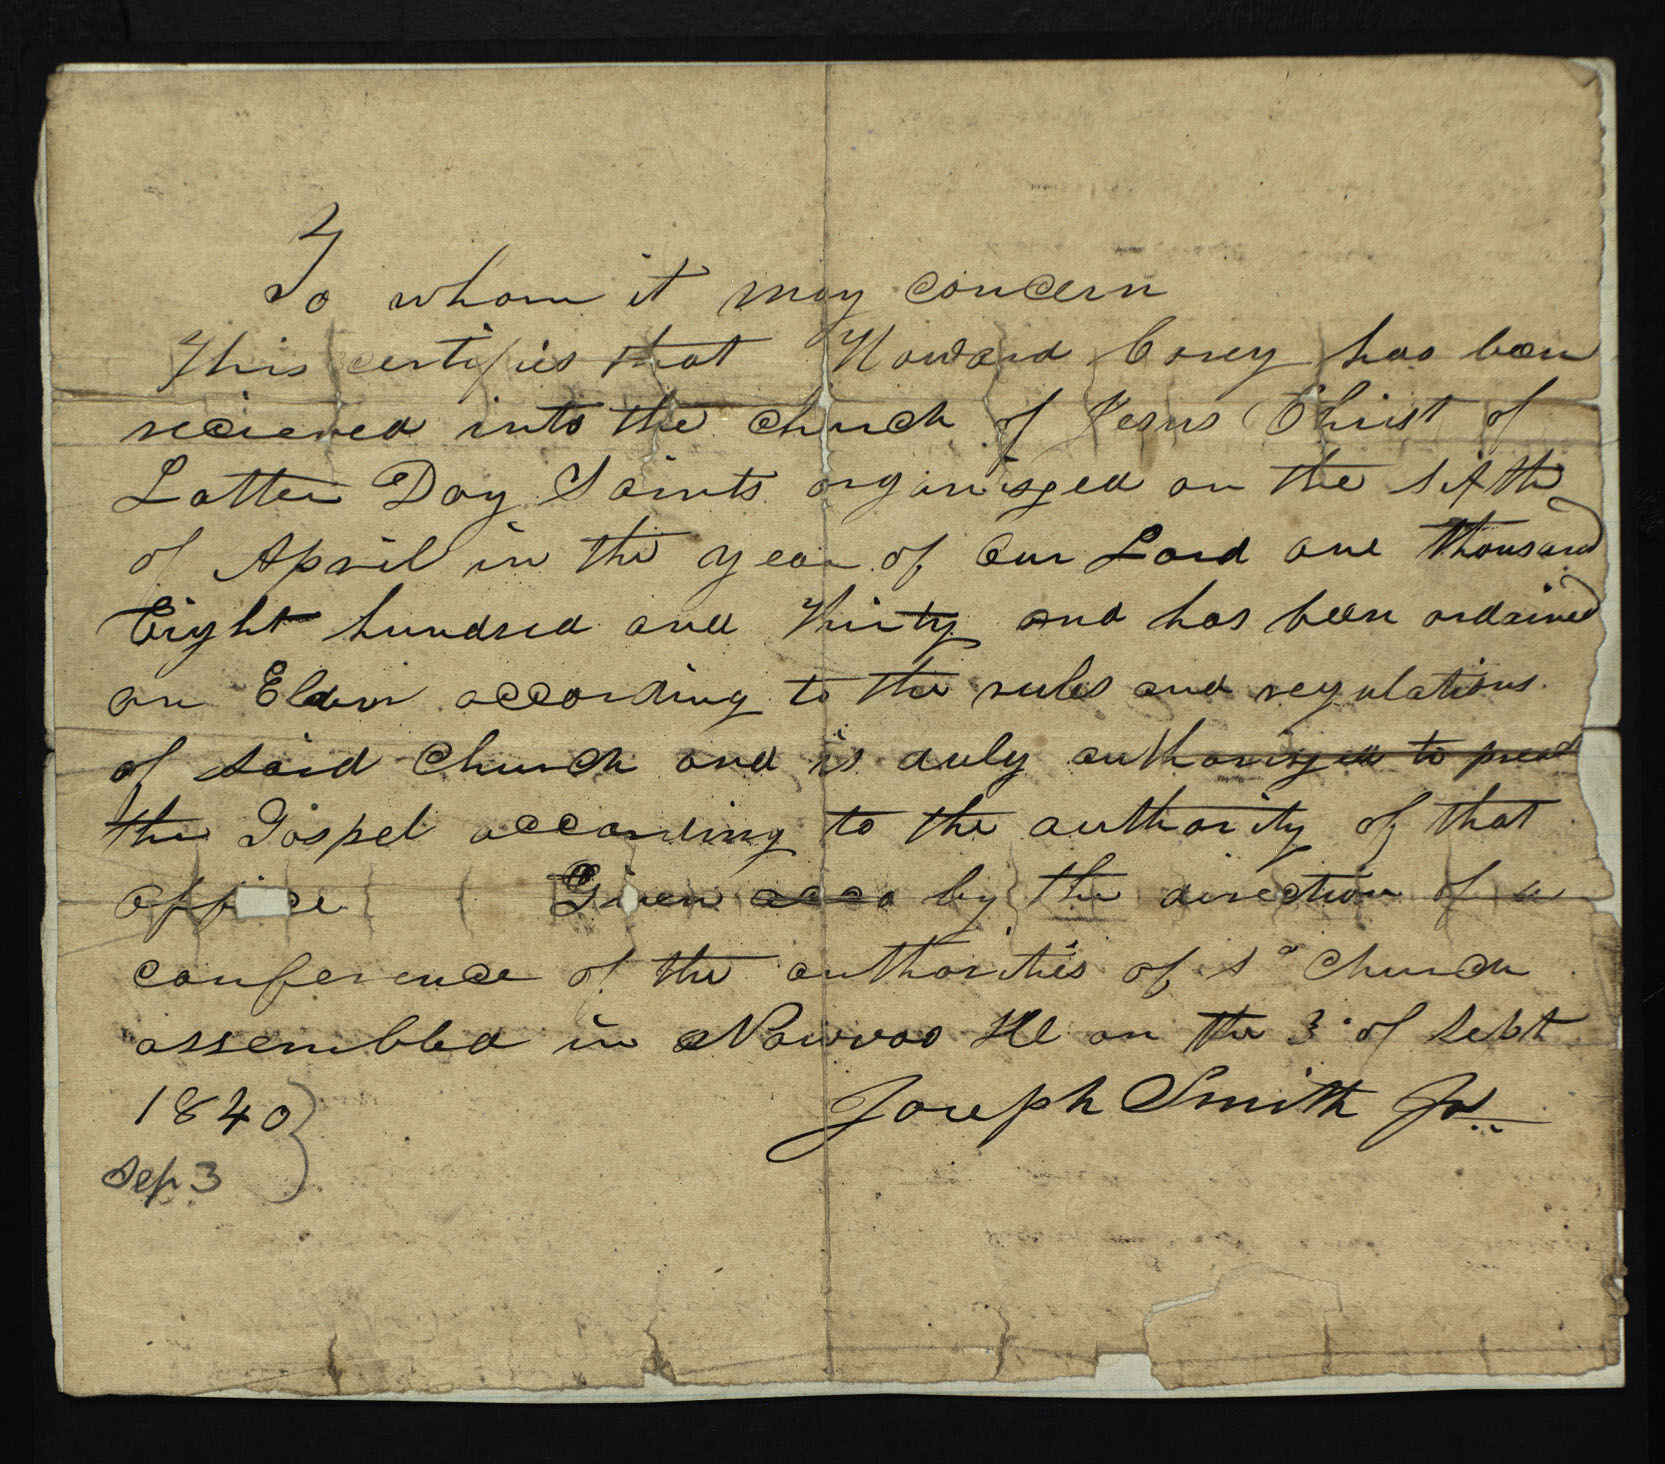 To whom it may concern
This certifies that Howard Corey has been
recieved into the church of Jesus Christ of
Latter Day Saints organiszed on the sixth
of April in the year of Our Lord one thousand
Eight hundred and thirty and has been ordained
an Elder according to the rules and regulations
of said Church and is duly authoriszed to preach
the Gospel according to the authority of that
office Given acco by the direction of a
conference of the authorities of sd Church
assembled in Nauvoo Ill on the 3d of Sebt
1840 Joseph Smith Jr
Sep 3